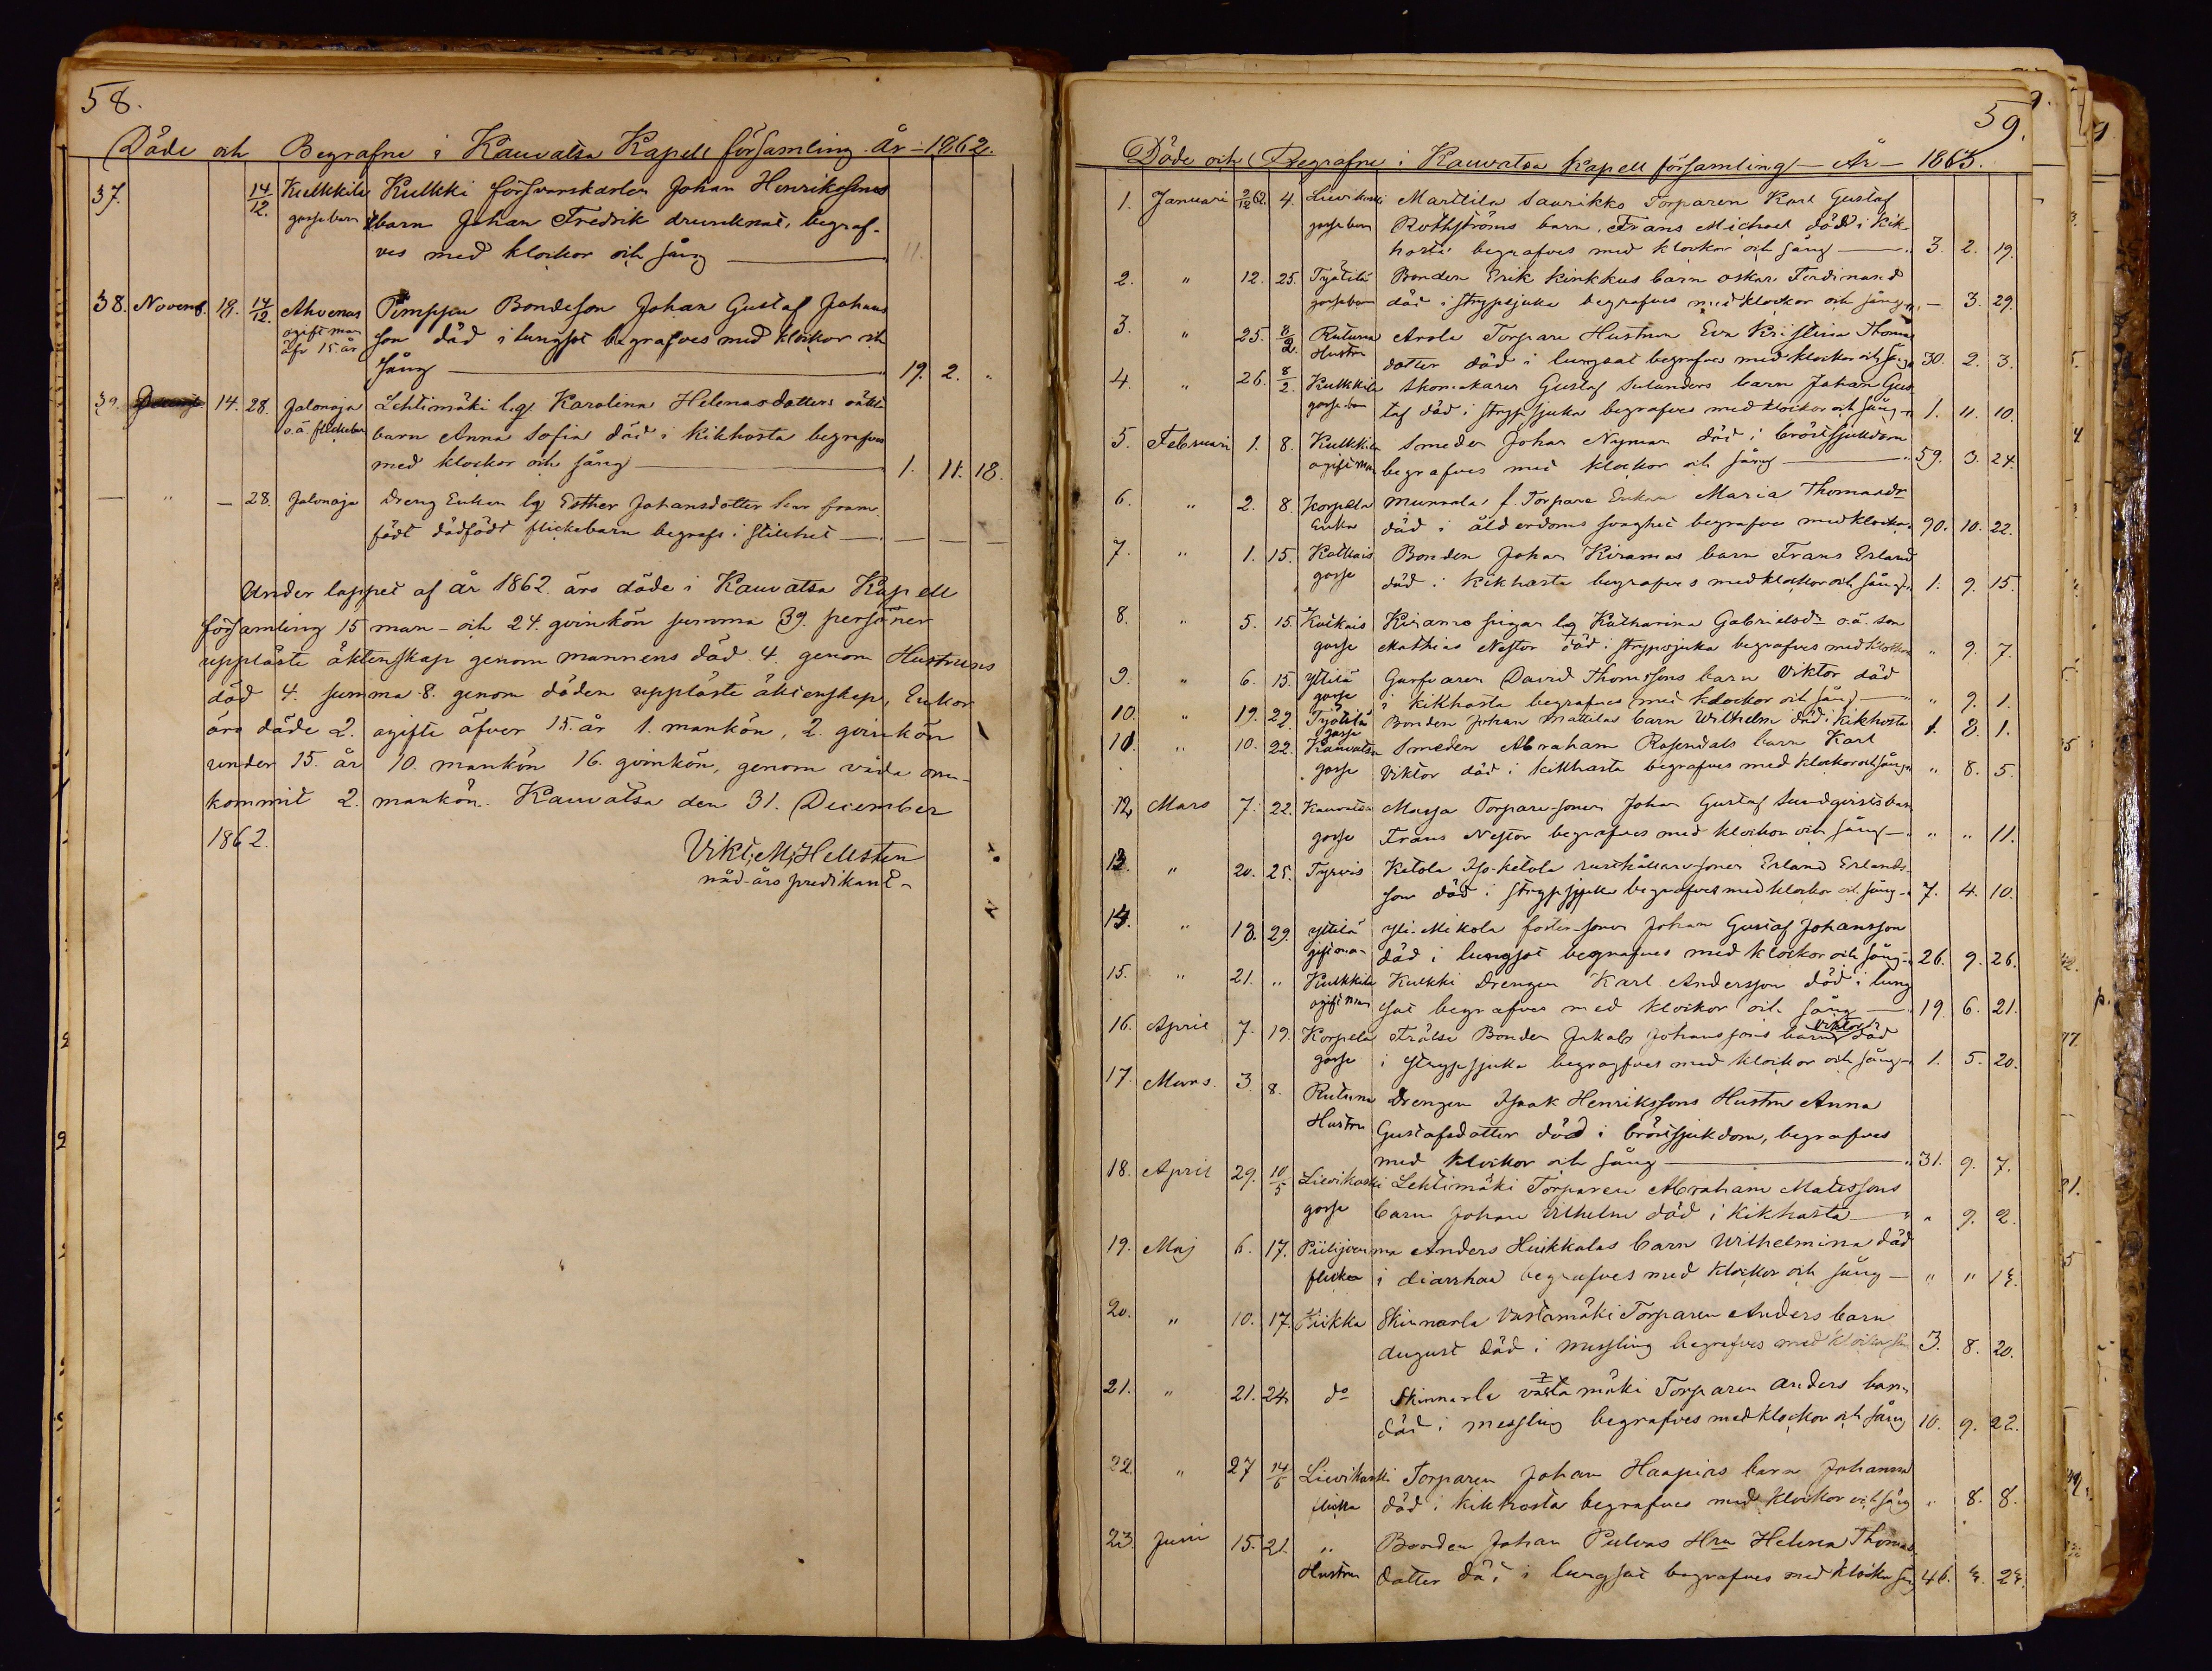 58.
Döde och Begrafne i Kauvatsa Kapell församling År - 1862.
37. 14/12. Kulkkila Kulkki försvarskarlen Johan Henrikssons
gossebarn barn Johan Fredrik drunknat, begraf-
ves med klockor och sång 11.
38. Novemb. 18. 14/12. Ahvenus Pimppu Bondeson Johan Gustaf Johans
ogift man son död i lungsot begrafves med klockor och
öfr 15 år sång 19. 2. "
39. 14. 28. Jalonoja Lehtimäki lqs Karolina Helenasdotters oäkta
o.ä. flickebn barn Anna Sofia död i kikhosta begrafves
med klockor och sång 1. 11. 18.
— " — 28. Jalonoja Dreng Enkan lqs Esther Johansdotter har fram
födt dödfödt flickebarn begrafs i stillhet — — —
Under loppet af år 1862. äro döde i Kauvatsa Kapell
församling 15 man- och 24. qvinkön summa 39. personer
upplöste äktenskap genom mannens död 4. genom Hustruns
död 4. summa 8. genom döden upplöste äktenskap, Enkor
äro döde 2. ogifte öfver 15. år 1. mankön, 2. qvinkön
under 15. år 10. mankön 16. qvinkön, genom våda om-
kommit 2. mankön. Kauvatsa den 31. December
1862.
Vikt; M; Hellsten
nåd-års predikant
59.
Döde och Begrafne i Kauvatsa Kapell församling — År — 1863.
1. Januari 2/12 62. 4. Lievikoski Marttila Saurikko Torparen Karl Gustaf
gossebarn Rothströms barn, Frans Michael död i kik-
hosta begrafves med klockor och sång 3. 2. 19.
2. " 12. 25. Työtilä Bonden Erik Kinkkus barn Oskar Ferdinand
gossebarn död i strypsjuka begrafves med klockor och sång — 3. 29.
3. " 25. 8/2. Rutuna Arola Torpare Hustrun Eva Kristina Thomas
Hustru dotter död i lungsot begrafves med klockor och sång 30. 2. 3.
4. " 26. 8/2. Kulkkila Skomakaren Gustaf Sulanders barn Johan Gus
gossebarn taf död i strypsjuka begrafves med klockor och sång 1. 11. 10.
5. Februari 1. 8. Kulkkila Smeden Johan Nyman död i bröstsjukdom
ogift man begrafves med klockor och sång 59. 3. 24.
6. " 2. 8. Korpela Munnola f. Torpare Enkan Maria Thomasdr
Enka död i ålderdoms svaghet begrafves med klockor 90. 10. 22.
7. " 1. 15. Kotkais Bonden Johan Kiramos barn Frans Erland
gosse död i kikhosta begrafves med klockor och sång 1. 9. 15.
8. " 5. 15. Kotkais Kiramo pigan lqs Katharina Gabrielsdr o.ä. son
gosse Mathias Nestor död i strypsjuka begrafves med klockor " 9. 7.
9. " 6. 15. Yttilä Garfvaren David Thomssons barn Viktor död
gosse i kikhosta begrafves med klockor och sång " 9. 1.
10. " 19. 22. Työtilä Bonden Johan Mattilas barn Wilhelm död i kikhosta 1. 8. 1.
gosse
11. " 10. 22. Kauvatsa Smeden Abraham Rosendals barn Karl
gosse Viktor död i kikhosta begrafves med klockor och sång " 8. 5.
12. Mars 7. 22. Kauvatsa Torpare-sonen Johan Gustaf Sundqvists barn
gosse Frans Nestor begrafves med klockor och sång " " 11.
13. " 20. 25. Tyrvis Ketola Iso-Ketola rusthållare-sonen Erland Erlands
son död i strypsjuka begrafves med klockor och sång 7. 4. 10.
14. " 18. 29. Yttilä Yli-Mikola foster-sonen Johan Gustaf Johansson
gift man död i lungsot begrafves med klockor och sång 26. 9. 26.
15. " 21. " Kulkkila Kulkki Drengen Karl Andersson död i lung
ogift man sot begrafves med klockor och sång 19. 6. 21.
16. April 7. 19. Korpela Frälse Bonden Jakob Johanssons barn Viktor död
gosse i strypsjuka begrafves med klockor och sång 1. 5. 20.
17. Mars. 3. 8. Rutuna Drengen Isaak Henrikssons Hustru Anna
Hustru Gustafsdotter död i bröstsjukdom, begrafves
med klockor och sång 31. 9. 7.
18. April 29. 10/5 Lievikoski Lehtimäki Torparen Abraham Matssons
gosse barn Johan Vilhelm död i kikhosta " 9. 2.
19. Maj 6. 17. Piilijoenma Anders Huikkalas barn Wilhelmina död
flicka i diarrhae begrafves med klockor och sång — " " 14.
20. " 10. 17. Kiikka Skinnarla Vastamäki Torparen Anders barn
August död i messling begrafves med klockor sån 3. 8. 20.
21. " 21. 24. do Skinnarla Vastamäki Torparen Anders barn
död i messling begrafves med klockor och sång 10. 9. 22.
22. " 27 14/6 Lievikoski Torparen Johan Haapios barn Johanna
flicka död i kikhosta begrafves med klockor och sång " 8. 8.
23. Juni 15. 21. " Bonden Johan Pulvas Hru Helena Thomas
Hustru dotter död i lungsot begrafves med klockor sång 46. 4. 24.